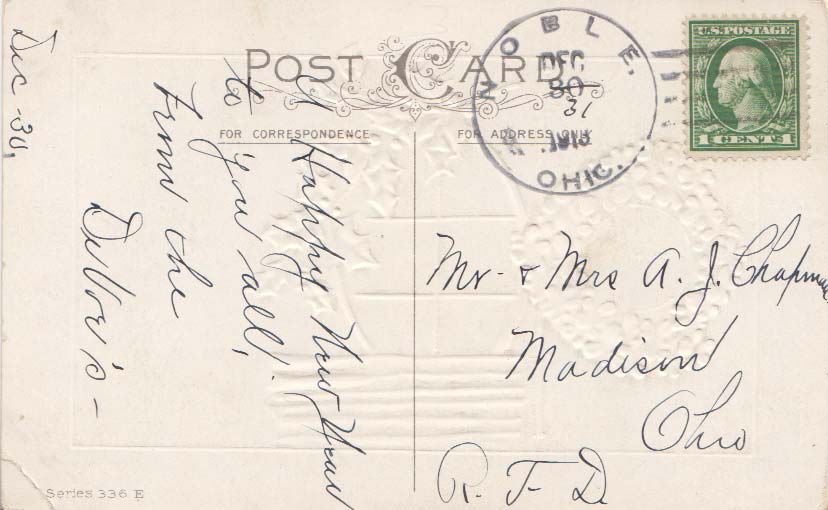 POST CARD
FOR CORRESPONDENCE
FOR ADDRESS ONLY
NOBLE,
DEC
30
31
OHIO.
U.S. POSTAGE
1 CENT 1
Dec - 30,
A Happy New Year
to you all,
From the
DeVore's -
Mr - & Mrs A. J. Chapman
Madison
Ohio
R. F. D.
Series 336 E